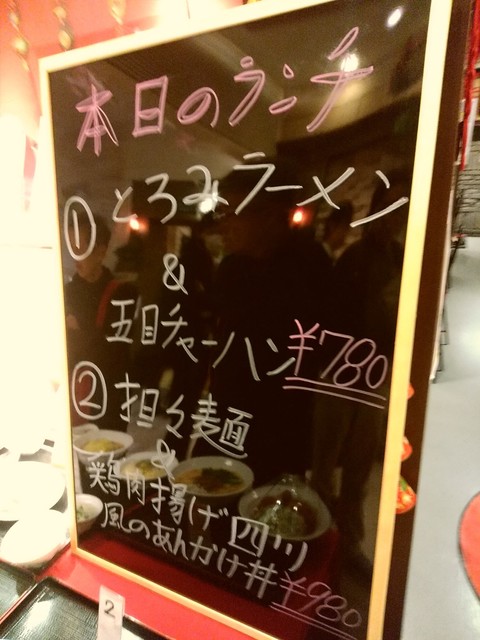 本日のランチ
① とろみラーメン
&
五目チャーハン ¥780
② 担々麺
&
鶏肉揚げ四川
風のあんかけ丼 ¥980
2